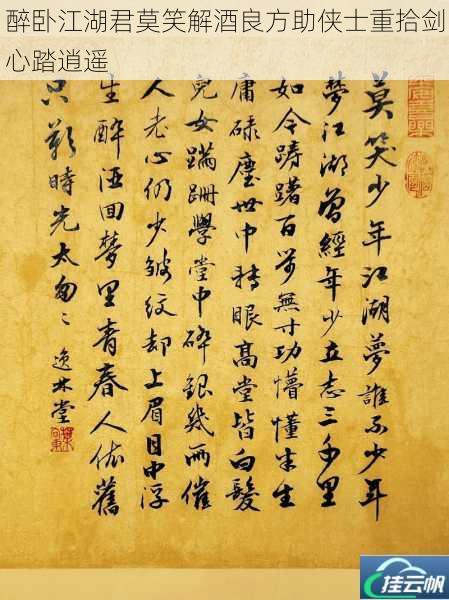 醉卧江湖君莫笑解酒良方助侠士重拾剑
心踏逍遥
莫笑少年江湖夢誰不少年
夢江湖曾經年少立志三千里
如今躊躇百步無寸功懵懂半生
庸碌塵世中轉眼高堂皆白髮
兒女蹣跚學堂中碎銀幾兩催
人老心仍少皺紋却上眉目中浮
生醉酒回夢里青春人依舊
只歎時光太匆〻 逸林堂
挂云帆